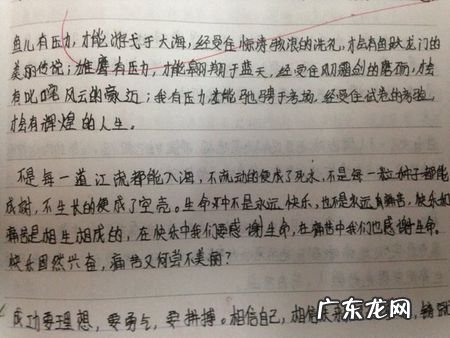 鱼儿有压力,才能游弋于大海,经受住惊涛骇浪的洗礼,才会有鱼跃龙门的
美丽传说;雄鹰有压力,才能翱翔于蓝天,经受住风霜剑的磨砺,才会
有叱咤风云的豪迈;我有压力才能驰骋于考场,经受住试卷的考验
才会有辉煌的人生。
不是每一道江流都能入海,不流动的便成了死水,不是每一粒种子都能
成树,不生长的便成了空壳。生命中不是永远快乐,也不是永远有痛苦,快乐如
痛苦是相生相成的,在快乐中我们要感谢生命,在痛苦中我们也感谢生命。
快乐固然兴奋,痛苦又何尝不美丽?
成功要理想,要勇气,要拼搏。相信自己,相信
广东龙网